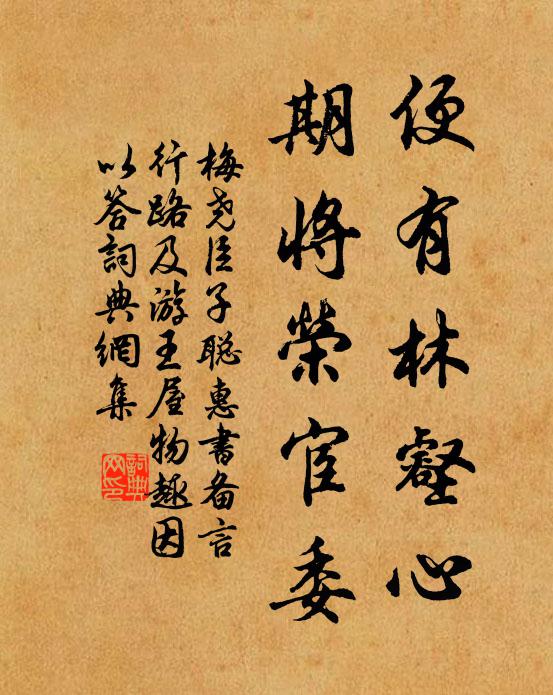 便有林壑心
期將榮宦委
梅尧臣子聪惠書备言
行路及游王屋物趣因
以答詞典網集
詞典
网印